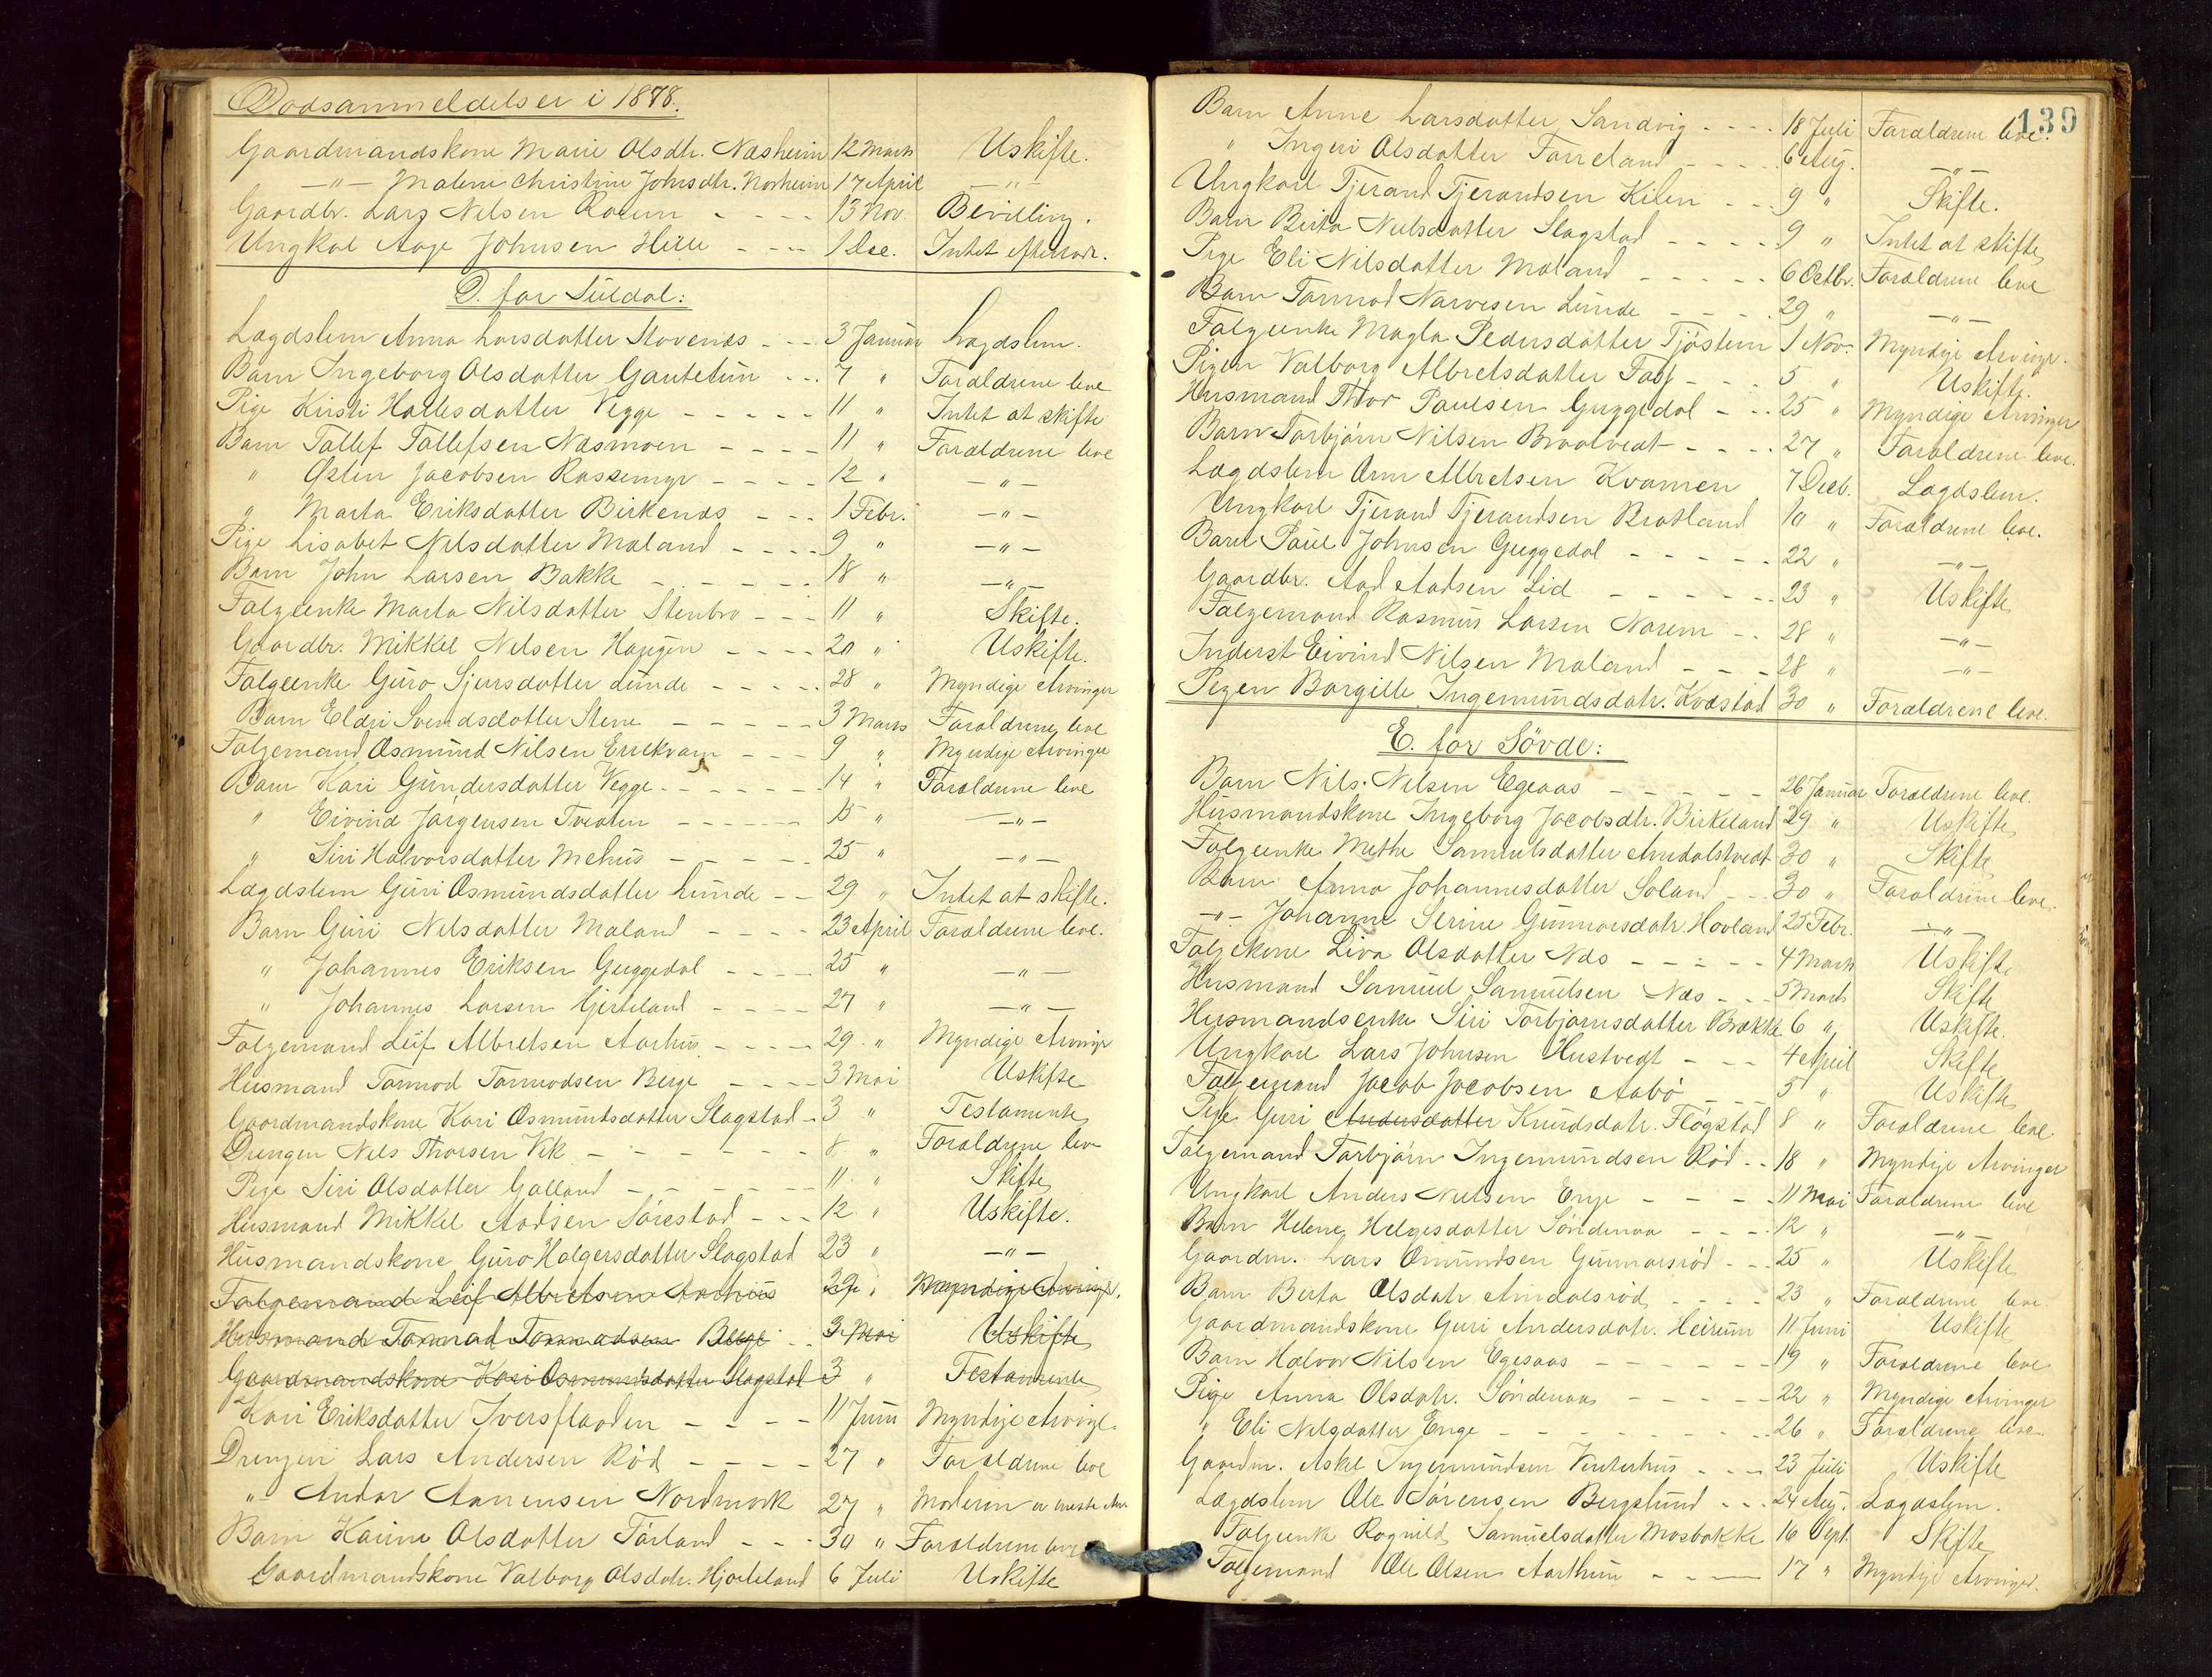 Dødsanmeldelser i 1878.
Gaardmandskone Marie Olsdtr. Næsheim 12 Marts Uskifte.
—"— Malene Christine Johnsdtr. Norheim 17 April —"—
Gaardbr. Lars Nilsen - - - - 13 Nov. Bevilling.
Ungkal Aage Johnsen Hille - - - 1 Dec. Intet efterladt.
D. for Suldal:
Lægdslem Anna Larsdatter Stovenæs - - - 3 Januar Lægdslem.
Barn Ingeborg Olsdatter Gautetun - - - 7 " Forældrene leve
Pige Kirsti Hallesdatter Vegge - - - - - 11 " Intet at skifte
Barn Tallef Tallefsen Næsmoen - - - - 11 " Forældrene leve
" Østen Jacobsen Rossemyr - - - - 12 " —"—
" Marta Eriksdatter Birkenæs - - - 1 Febr. —"—
Pige Lisabet Nilsdatter Mæland - - - - 9 " —"—
Barn John Larsen Bakke - - - - - 18 " —"—
Følgeenke Marta Nilsdatter Stenbro - - - 11 " Skifte.
Gaardbr. Mikkel Nilsen Haugen - - - - 20 " Uskifte.
Følgeenke Guro Sjursdatter Lunde - - - - - 28 " Myndige Arvinger
Barn Eldri Svendsdatter Stene - - - - - 3 Marts Forældrene leve
Følgemand Osmund Nilsen Erekvam - - - 9 " Myndige Arvinger
Barn Kari Gundersdatter Vegge - - - - - - 14 " Forældrene leve
" Eivind Jørgensen Tveaten - - - - - - 15 " —"—
" Siri Halvorsdatter Mehus - - - - - 25 " —"—
Lægdslem Guri Osmundsdatter Lunde - - 29 " Intet at skifte.
Barn Guri Nilsdatter Mæland - - - - 23 April Forældrene leve.
" Johannes Eriksen Guggedal - - - - 25 " —"—
" Johannes Larsen - - - - 27 " —"—
Følgemand Leif Albretsen Aarhus - - - - 29 " Myndige Arvinger
Husmand Tormod Tormodsen Berge - - - - 3 Mai Uskifte
Gaardmandskone Kari Osmundsdatter Slagstad - 3 " Testamente
Drengen Nils Thorsen Vik - - - - - - - 8 " Forældrene leve
Pige Siri Olsdatter Galland - - - - - - 11 " Skifte
Husmand Mikkel Aadsen Sørestad - - - 12 " Uskifte.
Husmandskone Guro Holgersdatter Slagstad 23 " —"—
Følgemand Leif Albretsen Aarhus 29 " Myndige Arvinger.
Husmand Tormod Tormodsen Berge - - 3 Mai Uskifte
Gaardmandskone Kari Osmundsdatter Slagstad 3 " Testamente
Kari Eriksdatter Iversflaaden - - - - 11 Juni Myndige Arving.
Drengen Lars Andersen Rød - - - - 27 " Forældrene leve
" Andor Aanensen Nordmork 27 " Moderen er eneste Arv.
Barn Karine Olsdatter Førland - - - 30 " Forældrene leve
Gaardmandskone Valborg Olsdatr. Hjorteland 6 Juli Uskifte
139
Barn Anne Larsdatter Sandvig - - - - 18 Juli Forældrene leve.
" Ingeri Olsdatter Førreland - - - - 6 Aug. —"—
Ungkarl Tjerand Tjerandsen Kilen - - - 9 " Skifte.
Barn Berta Nielsdatter Slagstad - - - - 9 " Intet at skifte
Pige Eli Nilsdatter Mæland - - - - - 6 Octbr. Forældrene leve
Barn Tormod Narvesen Lunde - - - - 29 " —"—
Følgeenke Magla Pedersdatter Tjøstem 1 Nov. Myndige Arvinger.
Pigen Valborg Albretsdatter - - - 5 " Uskifte.
Husmand Thor Paulsen Guggedal - - - 25 " Myndige Arvinger
Barn Torbjørn Nilsen Braatveat - - - - 27 " Forældrene leve.
Lægdslem Orm Albretsen Kvamen 7 Decb. Lægdslem.
Ungkarl Tjerand Tjerandsen Bratland 10 " Forældrene leve.
Barn Paul Johnsen Guggedal - - - - - 22 " —"—
Gaardbr. Aad Aadsen Lid - - - - - - 23 " Uskifte
Følgemand Rasmus Larsen Nærem - - 28 " —"—
Inderst Eivind Nilsen Mæland - - - 28 " —"—
Pigen Borgille Ingemundsdatr. Kvæstad 30 " Forældrene leve.
E. for Søvde:
Barn Nils Nilsen Egeaas - - - - - 26 Januar Forældrene leve.
Husmandskone Ingeborg Jacobsdtr. Birkeland 29 " Uskifte
Følgeenke Methe Samuelsdatter Amdalstvedt 30 " Skifte
Barn Anna Johannesdatter Søland - - - 30 " Forældrene leve.
—"— Johanne Serine Gunnarsdatr. Hovland 25 Febr. —"—
Følgekone Liva Olsdatter Næs - - - - - 4 Marts Uskifte
Husmand Samuel Samuelsen Næs - - - 5 Marts Skifte
Husmandsenke Siri Torbjørnsdatter Brække 6 " Uskifte.
Ungkarl Lars Johnsen Hustvedt - - - 4 April Skifte
Følgemand Jacob Jacobsen Aabø - - - 5 " Uskifte
Pige Guri Andersdatter Knudsdatr. Fløgstad 8 " Forældrene leve.
Følgemand Torbjørn Ingemundsen Rød - - 18 " Myndige Arvinger
Ungkarl Anders Nilsen Enge - - - - 11 Mai Forældrene leve
Barn Helene Helgesdatter Søndenaa - - - - 12 " —"—
Gaardm. Lars Omundsen Gunnarsrød - - - 25 " Uskifte
Barn Berta Olsdatr. Amdalsrød - - - - 23 " Forældrene leve.
Gaardmandskone Guri Andersdatr. Heirum 11 Juni Uskifte
Barn Halvor Nilsen Egesaas - - - - - - 19 " Forældrene leve
Pige Anna Olsdatr. Søndenaa - - - - - 22 " Myndige Arvinger
" Eli Nilsdatter Enge - - - - - - - - 26 " Forældrene leve.
Gaardm. Askel Ingemundsen Vinterhus - - - 23 Juli Uskifte
Lægdslem Ole Sørensen Berglund - - - 24 Aug. Lægdslem.
Følgeenke Ragnild Samuelsdatter Mosbakke 16 Sept. Skifte
Følgemand Ole Olsen Aarthun - - - - 17 " Myndige Arvinger.